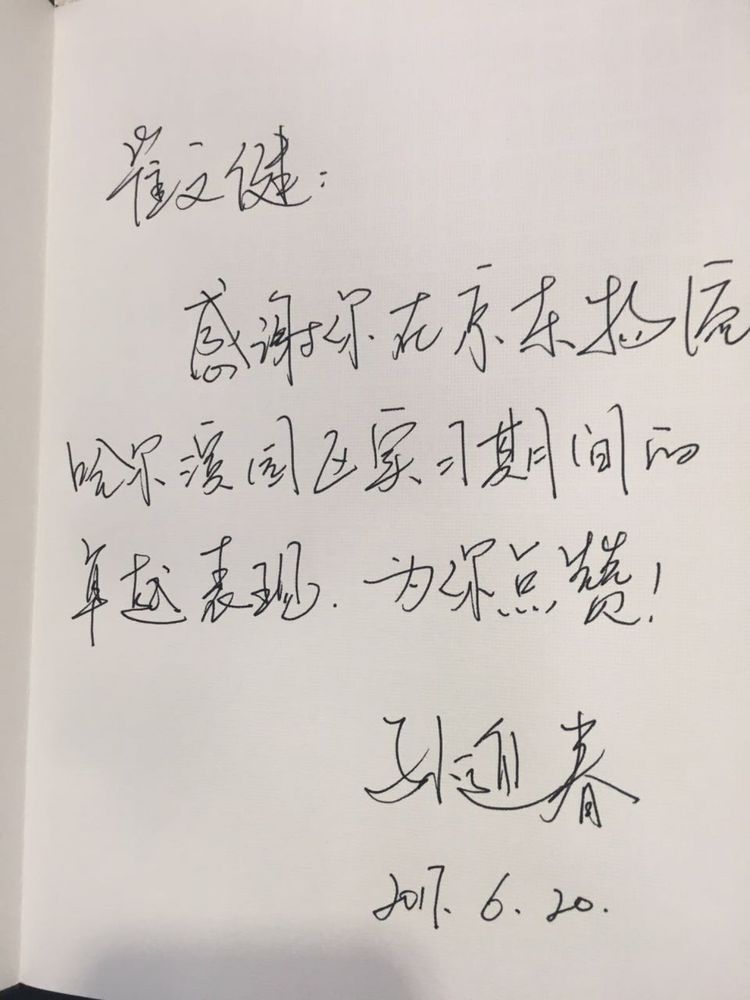 崔文健：
感谢你在京东物流
哈尔滨园区实习期间的
卓越表现.为你点赞！
孙迎春
2017.6.20.